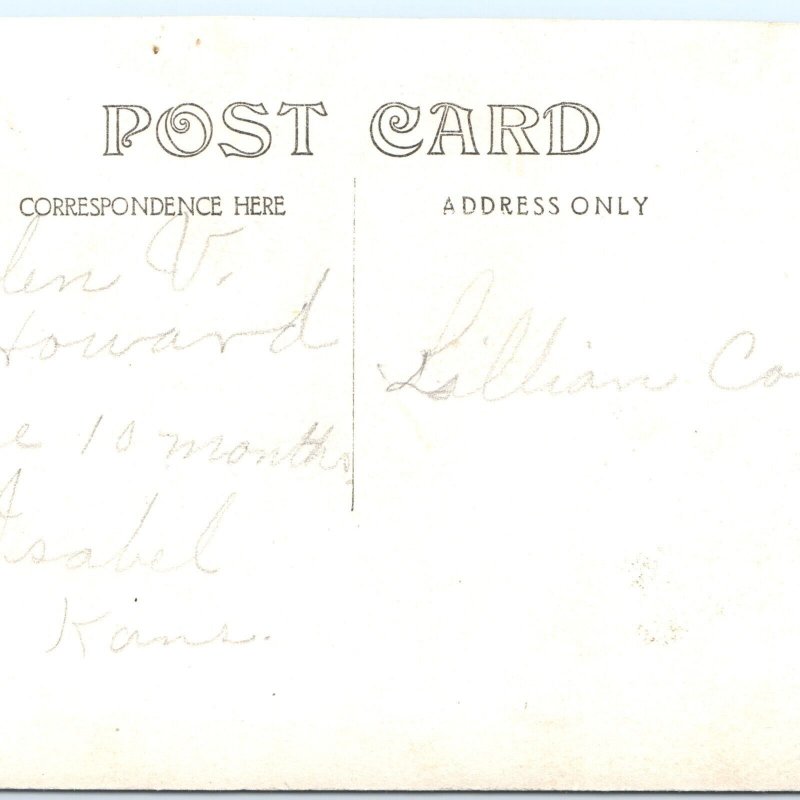 POST CARD
CORRESPONDENCE HERE
ADDRESS ONLY
len V.
Howard
e 10 months
Isabel
Kans.
Lillian Co